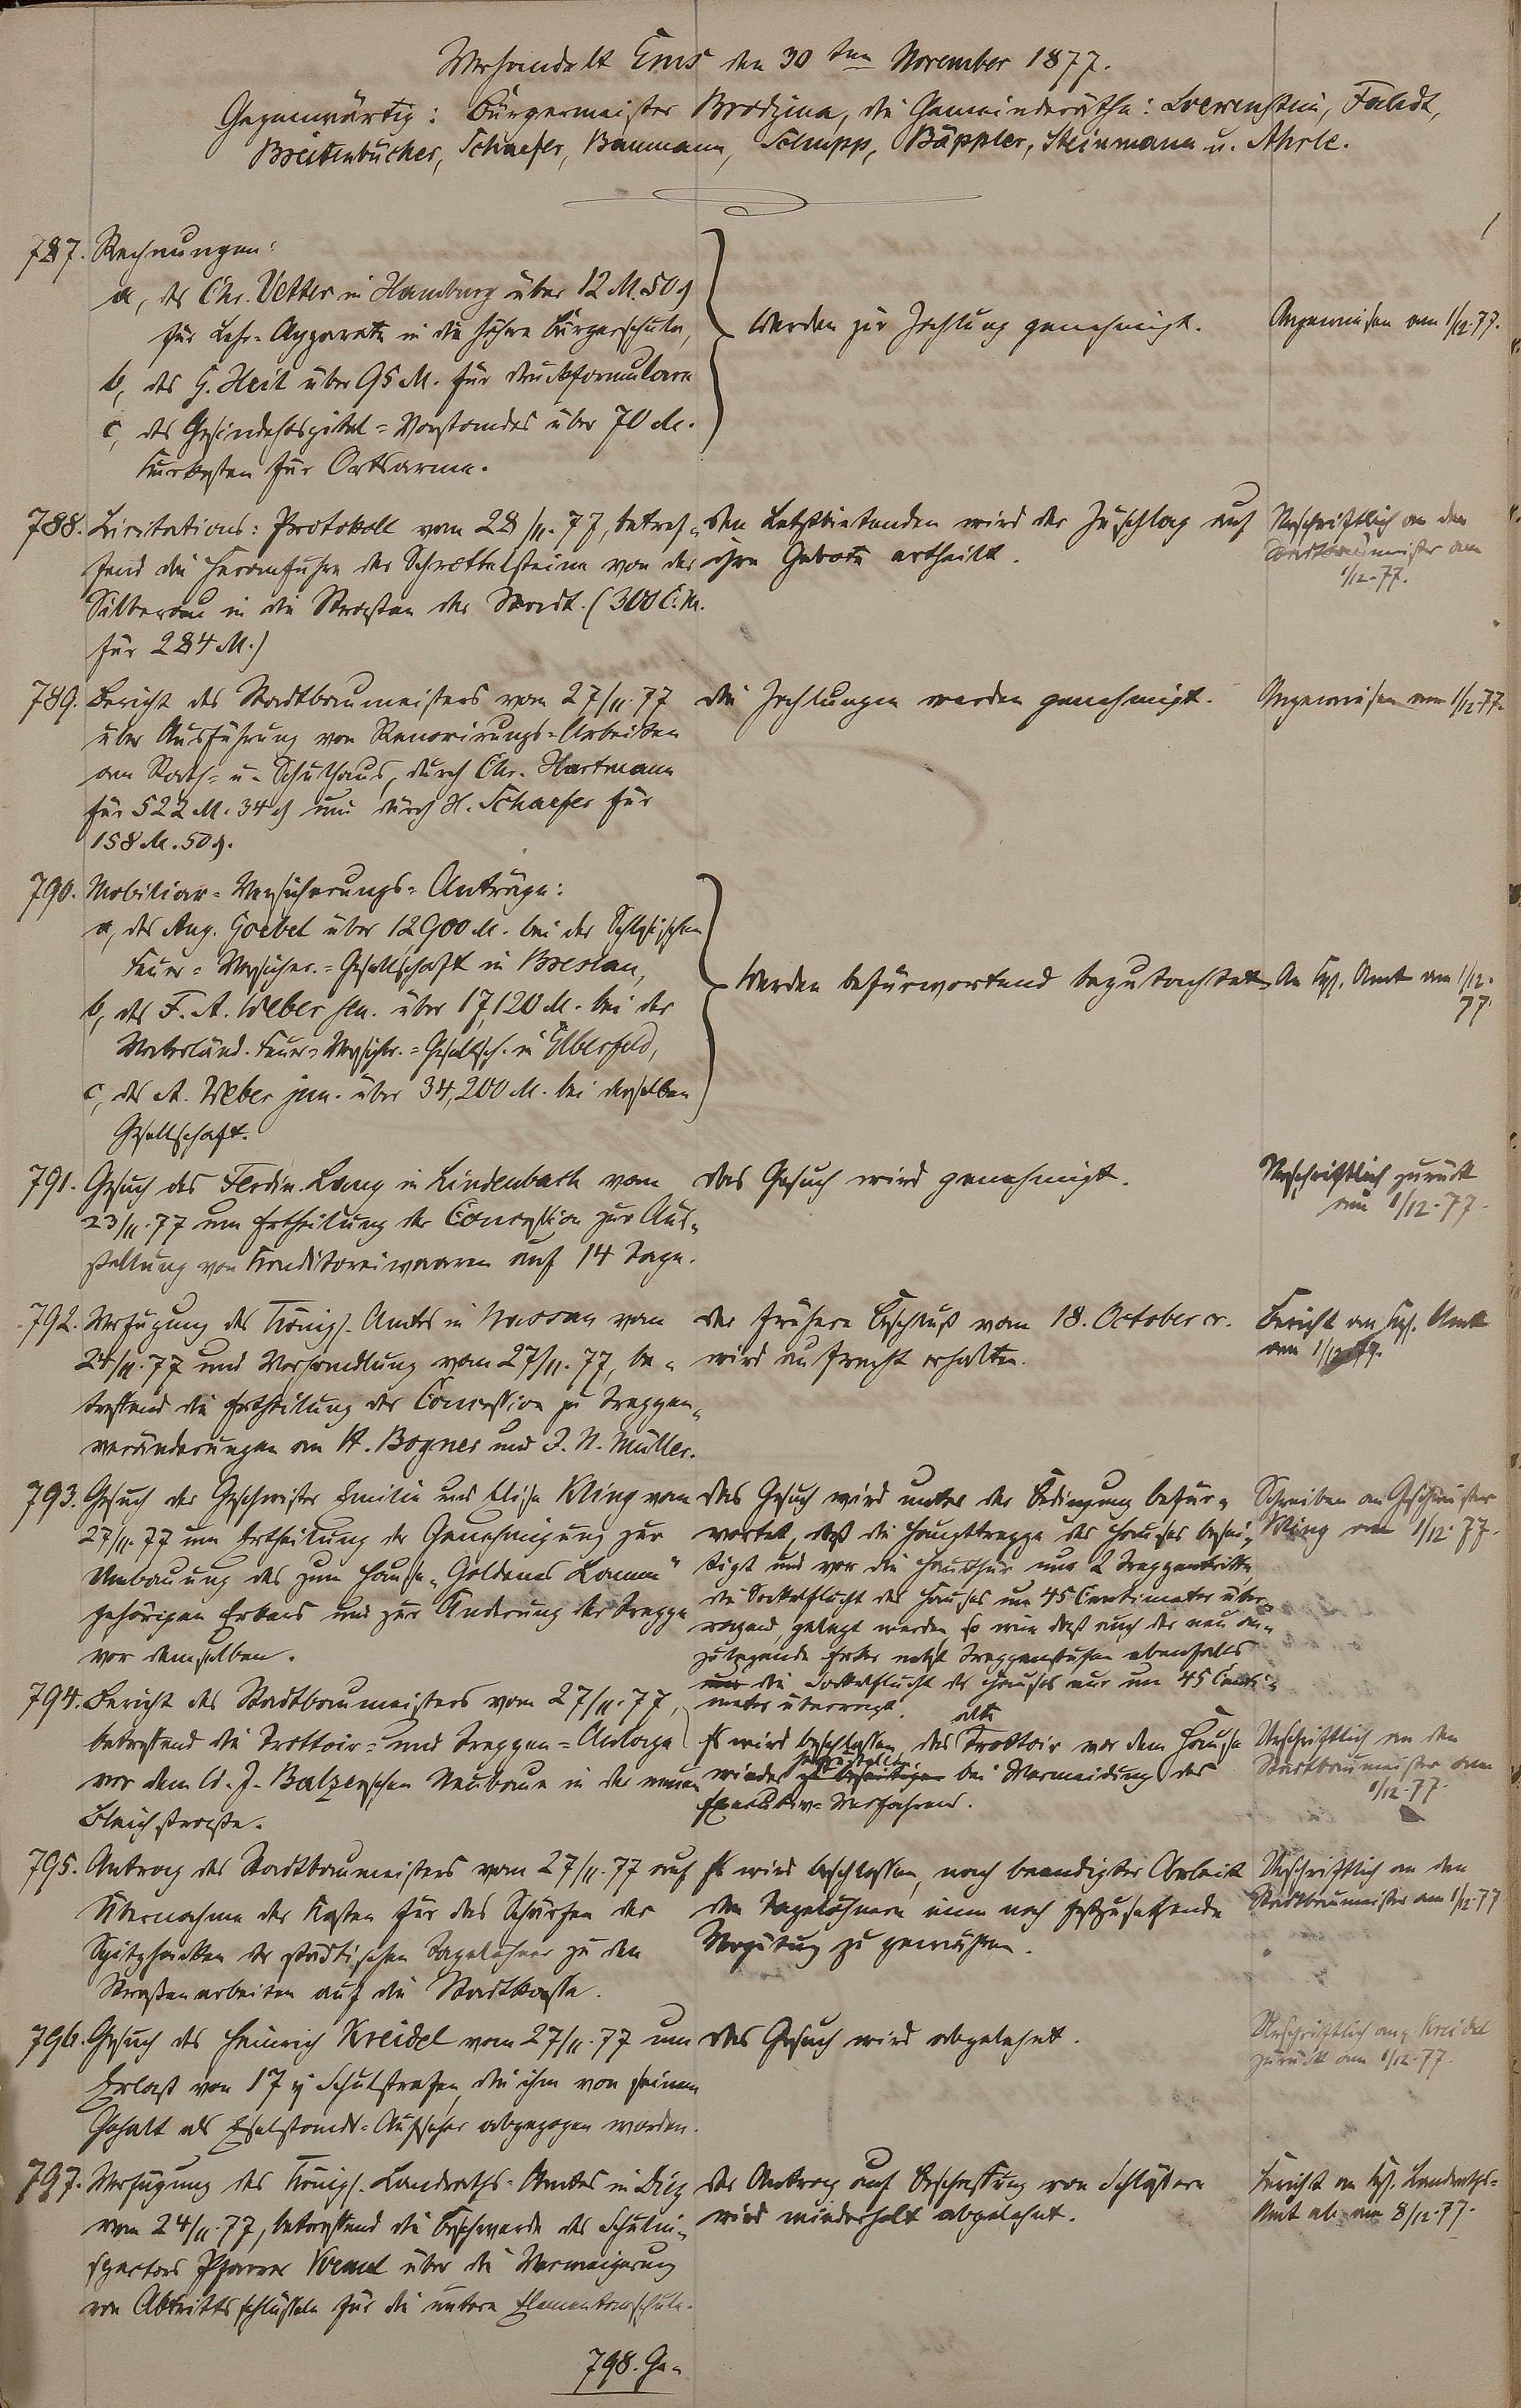 Verhandelt Ems den 30ten November 1877.
Gegenwärtig: Bürgermeister Brodzina, die Gemeinderäthe: Loewenstein, Faledt,
Breitenbücher, Schaefer, Baumann, Schupp, Bäppler, Steinmann u. Ahrle.
787. Rechnungen:
a, des Chr. Vetter in Hamburg über 12 M. 50 ₰
für Lehr-Apparate in die höhere Bürgerschule,
b, des G. Heil über 95 M. für Druckformulare
c, des Gesindehospital-Vorstandes über 70 M.
Kurkosten für Ortsarme.
Werden zur Zahlung genehmigt.
Angewiesen am 1/12. 77.
788. Licitations-Protokoll vom 28/11. 77, betref-
fend die Heranfuhr der Schrottelsteine von der
Silberau in die Straßen der Stadt. (300 C.M.
für 284 M.)
Den Letztbietenden wird der Zuschlag auf
ihre Gebote ertheilt.
Urschriftlich an den
Stadtbaumeister am
1/12. 77.
789. Bericht des Stadtbaumeisters vom 27/11. 77
über Ausführung von Renovirungs-Arbeiten
am Rath- u. Schulhaus, durch Chr. Hartmann
für 522 M. 34 ₰ und durch H. Schaefer für
158 M. 50 ₰.
Die Zahlungen werden genehmigt.
Angewiesen am 1/12. 77.
790. Mobiliar-Versicherungs-Anträge:
a, des Aug. Goebel über 12900 M. bei der Schlesischen
Feuer-Versicher.-Gesellschaft in Breslau,
b, des F. A. Weber sen. über 17,120 M. bei der
Vaterländ. Feuer-Versicher.-Gesellsch. in Elberfeld,
c, des A. Weber jun. über 34,200 M. bei derselben
Gesellschaft.
Werden befürwortend begutachtet.
An Kgl. Amt am 1/12.
77.
791. Gesuch des Ferdin. Lang in Lindenbach vom
23/11. 77 um Ertheilung der Concession zur Aus-
stellung von Konditoreiwaaren auf 14 Tage.
Das Gesuch wird genehmigt.
Urschriftlich zurück
am 1/12. 77.
792. Verfügung des Königl. Amts in Nassau vom
24/11. 77 und Verhandlung vom 27/11. 77, be-
treffend die Ertheilung der Concession zu Treppen-
veränderungen an H. Bogner und J. N. Müller.
Der frühere Beschluß vom 18. October cr.
wird aufrecht erhalten.
Bericht an Kgl. Amt
am 1/12. 77.
793. Gesuch der Geschwister Emilie und Elise Kling vom
27/11. 77 um Ertheilung der Genehmigung zur
Umbauung des zum Hause „Goldenes Lamm"
gehörigen Erkers und zur Änderung der Treppe
vor demselben.
Das Gesuch wird unter der Bedingung befür-
wortet, daß die Haupttreppe des Hauses besei-
tigt und vor die Hausthür nur 2 Treppentritte,
die Sockelflucht des Hauses um 45 Centimeter über-
ragend, gelegt werden, so wie daß auch der neu an-
zulegende Erker nebst Treppenstufen ebenfalls
nur die Sockelflucht des Hauses nur um 45 Centi-
meter überragt.
Schreiben an Geschwister
Kling am 1/12. 77.
794. Bericht des Stadtbaumeisters vom 27/11. 77,
betreffend die Trottoir- und Treppen-Anlage
vor dem Cl. J. Balzer'schen Neubaue in der neuen
Bleichstraße.
Es wird beschlossen, das alte Trottoir vor dem Hause
wieder herzustellen zu beseitigen bei Vermeidung des
Executiv-Verfahrens.
Urschriftlich an den
Stadtbaumeister am
1/12. 77.
795. Antrag des Stadtbaumeisters vom 27/11. 77 auf
Übernahme der Kosten für das Schärfen der
Spitzhacken der städtischen Tagelöhner zu den
Straßenarbeiten auf die Stadtkasse.
Es wird beschlossen, nach beendigter Arbeit
den Tagelöhnern eine noch festzusetzende
Vergütung zu gewähren.
Urschriftlich an den
Stadtbaumeister am 1/12. 77
796. Gesuch des Heinrich Kreidel vom 27/11. 77 um
Erlaß von 17 Schulstrafen, die ihm von seinem
Gehalt als Eselstands-Aufseher abgezogen worden.
Das Gesuch wird abgelehnt.
Urschriftlich an H. Kreidel
zurück am 1/12. 77.
797. Verfügung des Königl. Landraths-Amtes in Diez
vom 24/11. 77, betreffend die Beschwerde des Schulin-
spectors Pfarrer Vömel über die Verweigerung
von Abtrittsschlüsseln für die untere Elementarschule.
Der Antrag auf Beschaffung von Schlüsseln
wird wiederholt abgelehnt.
Bericht an Kgl. Landraths-
Amt ab am 8/12. 77.
798. Ge-